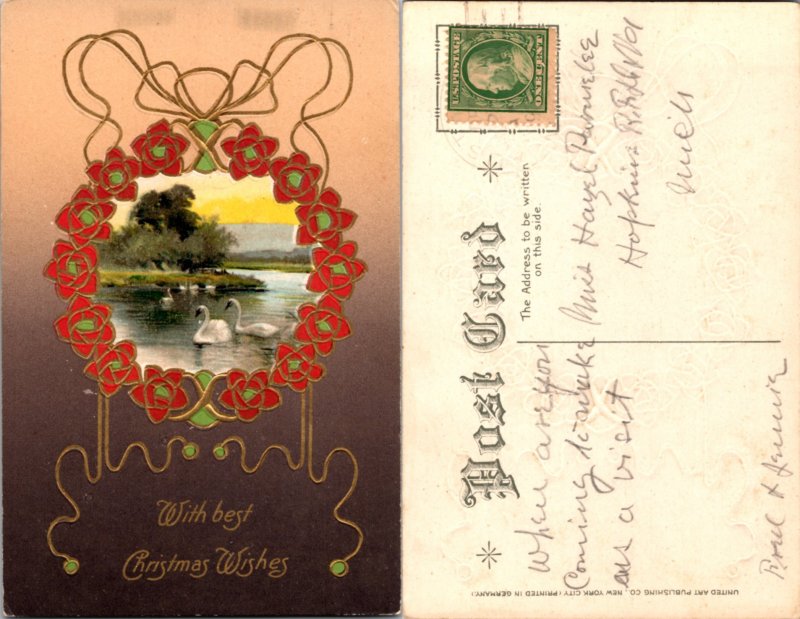 With best
Christmas Wishes
U.S. POSTAGE
ONE 1 CENT
Post Card
The Address to be written
on this side.
When are you
Coming to make
us a visit
Miss Hazel Parmelee
Hopkins
Mich
& Jennie
UNITED ART PUBLISHING CO., NEW YORK CITY (PRINTED IN GERMANY)